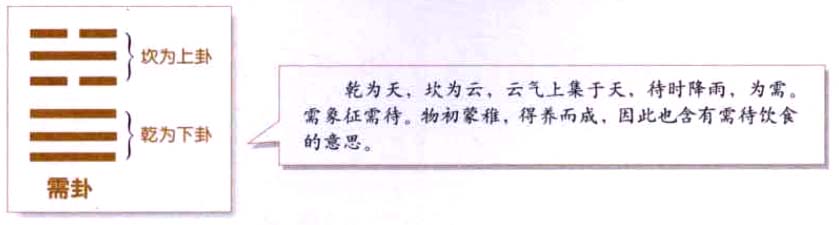 坎为上卦
乾为下卦
需卦
乾为天，坎为云，云气上集于天，待时降雨，为需。
需象征需待。物初蒙稚，得养而成，因此也含有需待饮食
的意思。